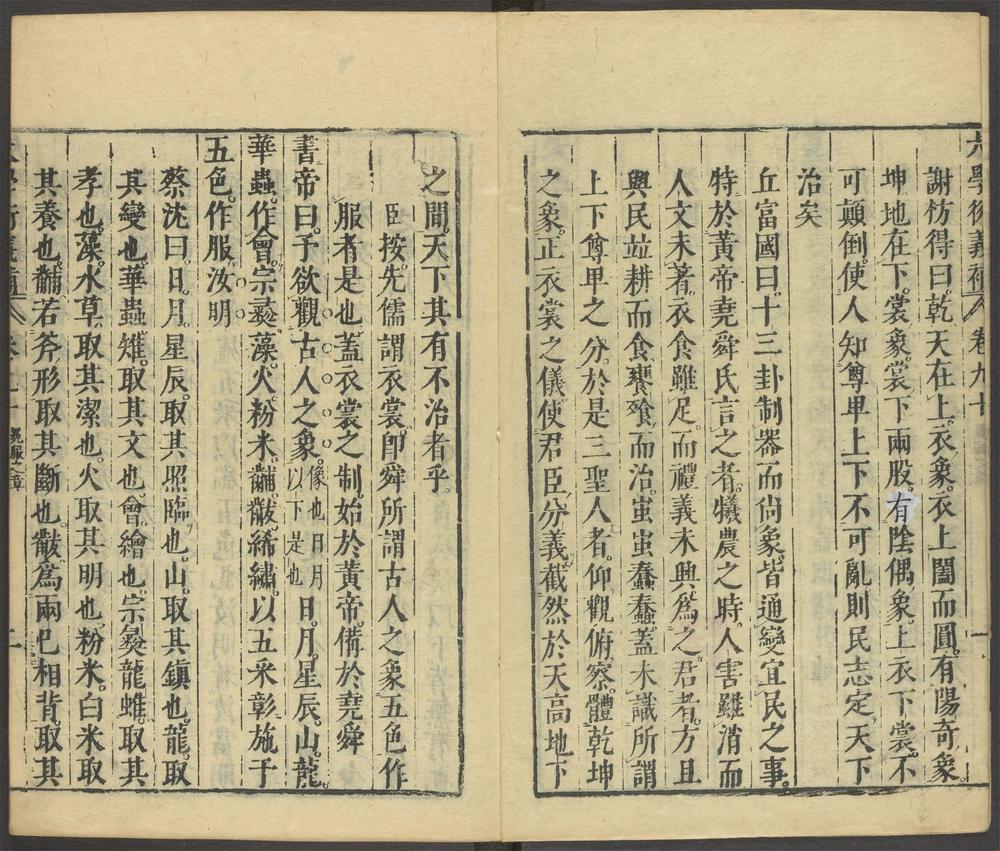 大學衍義補 卷九十 一
謝枋得曰。乾天在上。衣象。衣上闔而圓。有陽奇象。
坤地在下。裳象。裳下兩股。有陰偶象。上衣下裳。不
可顛倒。使人知尊卑上下不可亂則民志定。天下
治矣
丘富國曰。十三卦制器而尙象。皆通變宜民之事。
特於黃帝堯舜氏言之者。犧農之時。人害雖消而
人文未著。衣食雖足。而禮義未興。爲之君者。方且
與民並耕而食饔飱而治。蚩蚩蠢蠢。蓋未識所謂
上下尊卑之分。於是三聖人者。仰觀俯察。體乾坤
之象。正衣裳之儀使君臣分義截然於天高地下
之閒。天下其有不治者乎。
臣按。先儒謂衣裳。卽舜所謂古人之象。五色作
服者是也。蓋衣裳之制。始於黃帝。備於堯舜
書帝曰。予欲觀古人之象。像也日月以下是也日。月。星辰。山。龍。
華蟲。作會。宗彝。藻。火。粉米。黼。黻。絺繡。以五采彰施于
五色。作服。汝明
蔡沈曰。日。月。星辰。取其照臨也。山。取其鎮也。龍。取
其變也。華蟲。雉。取其文也。會。繪也。宗彝。虎蜼。取其
孝也。藻。水草。取其潔也。火取其明也。粉米。白米取
其養也。黼。若斧形取其斷也。黻。爲兩巳相背。取其
冕服之章 二